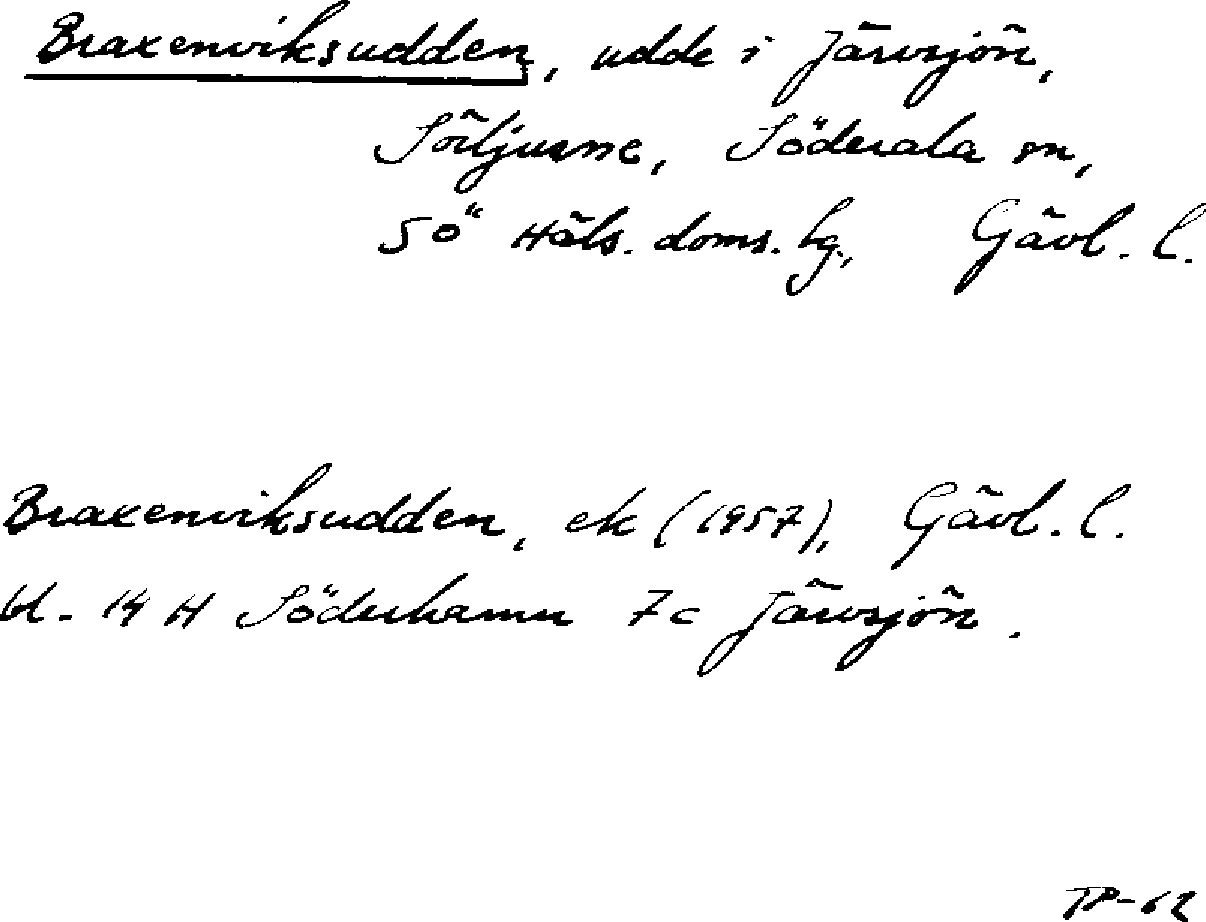 Braxenviksudden, udde i Järvsjön,
Sörljusne, Söderala sn,
SÖ Häls. doms. hg., Gävl. l.
Braxenviksudden, ek (1957), Gävl. l.
bl. 14 H Söderhamn 7c Järvsjön.
TP-62